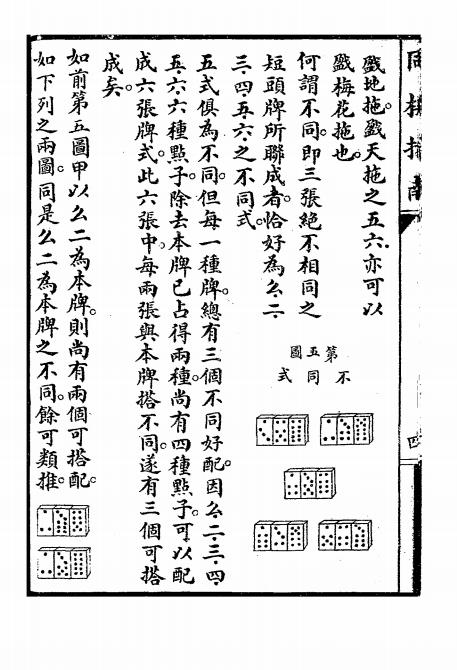 戤地拖。戤天拖之五六。亦可以
戤梅花拖也。
何謂不同。即三張絕不相同之
短頭牌所聯成者。恰好為幺二
三四五六之不同式。
第五圖
不同式
五式俱為不同。但每一種牌。總有三個不同好配。因幺二三四
五六六種點子。除去本牌已占得兩種。尚有四種點子。可以配
成六張牌式。此六張中。每兩張與本牌搭不同。遂有三個可搭
成矣。
如前第五圖甲以幺二為本牌。則尚有兩個可搭配。
如下列之兩圖。同是幺二為本牌之不同。餘可類推。
四